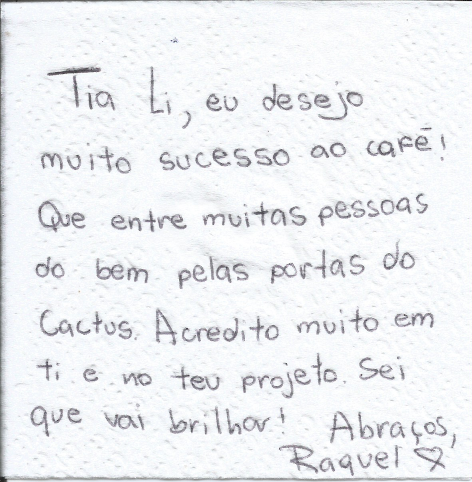 Tia Li, eu desejo
muito sucesso ao café!
Que entre muitas pessoas
do bem pelas portas do
Cactus. Acredito muito em
ti e no teu projeto. Sei
que vai brilhar! Abraços,
Raquel ♡